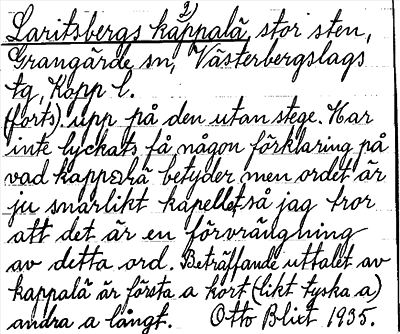 2)
Laritsbergs kappalä, stor sten,
Grangärde sn, Västerbergslags
tg, Kopp. l.
(forts). upp på den utan stege. Har
inte lyckats få någon förklaring på
vad kappalä betyder men ordet är
ju snarlikt kapellet, så jag tror
att det är en förvrängning
av detta ord. Beträffande uttalet av
kappalä är första a kort (likt tyska a)
andra a långt. Otto Blixt 1935.